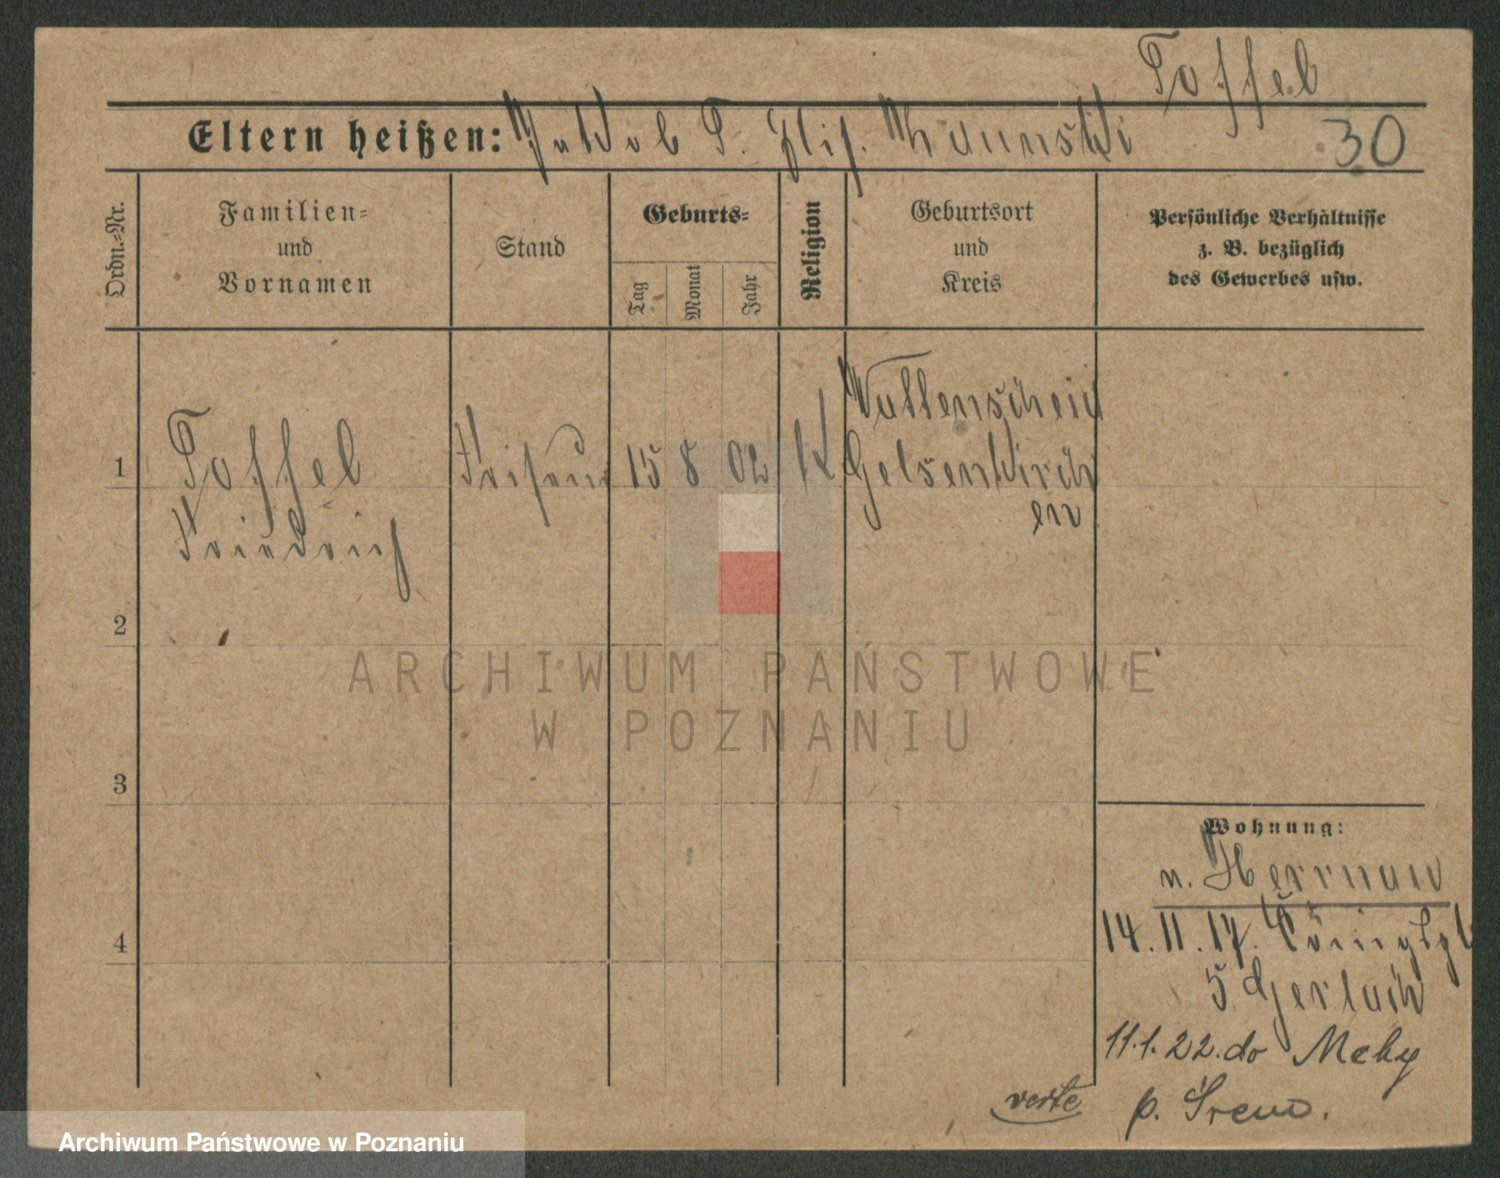 Toffel
Eltern heißen: Jakob T. Elis. Kaunski 30
Ordn.=Nr.
Familien=
und
Vornamen
Stand
Geburts=
Tag
Monat
Jahr
Religion
Geburtsort
und
Kreis
Persönliche Verhältnisse
z. B. bezüglich
des Gewerbes usw.
Wattenscheid
1 Toffel Friseur 15 8 02 K Gelsenkirch
en
Friedrich
2
ARCHIWUM PAŃSTWOWE
W POZNANIU
3
Wohnung:
n. Herrman
4
14. 11. 17. Königspl
5 Gerlach
11. 1. 22. do
verte
p. Śrem.
Archiwum Państwowe w Poznaniu